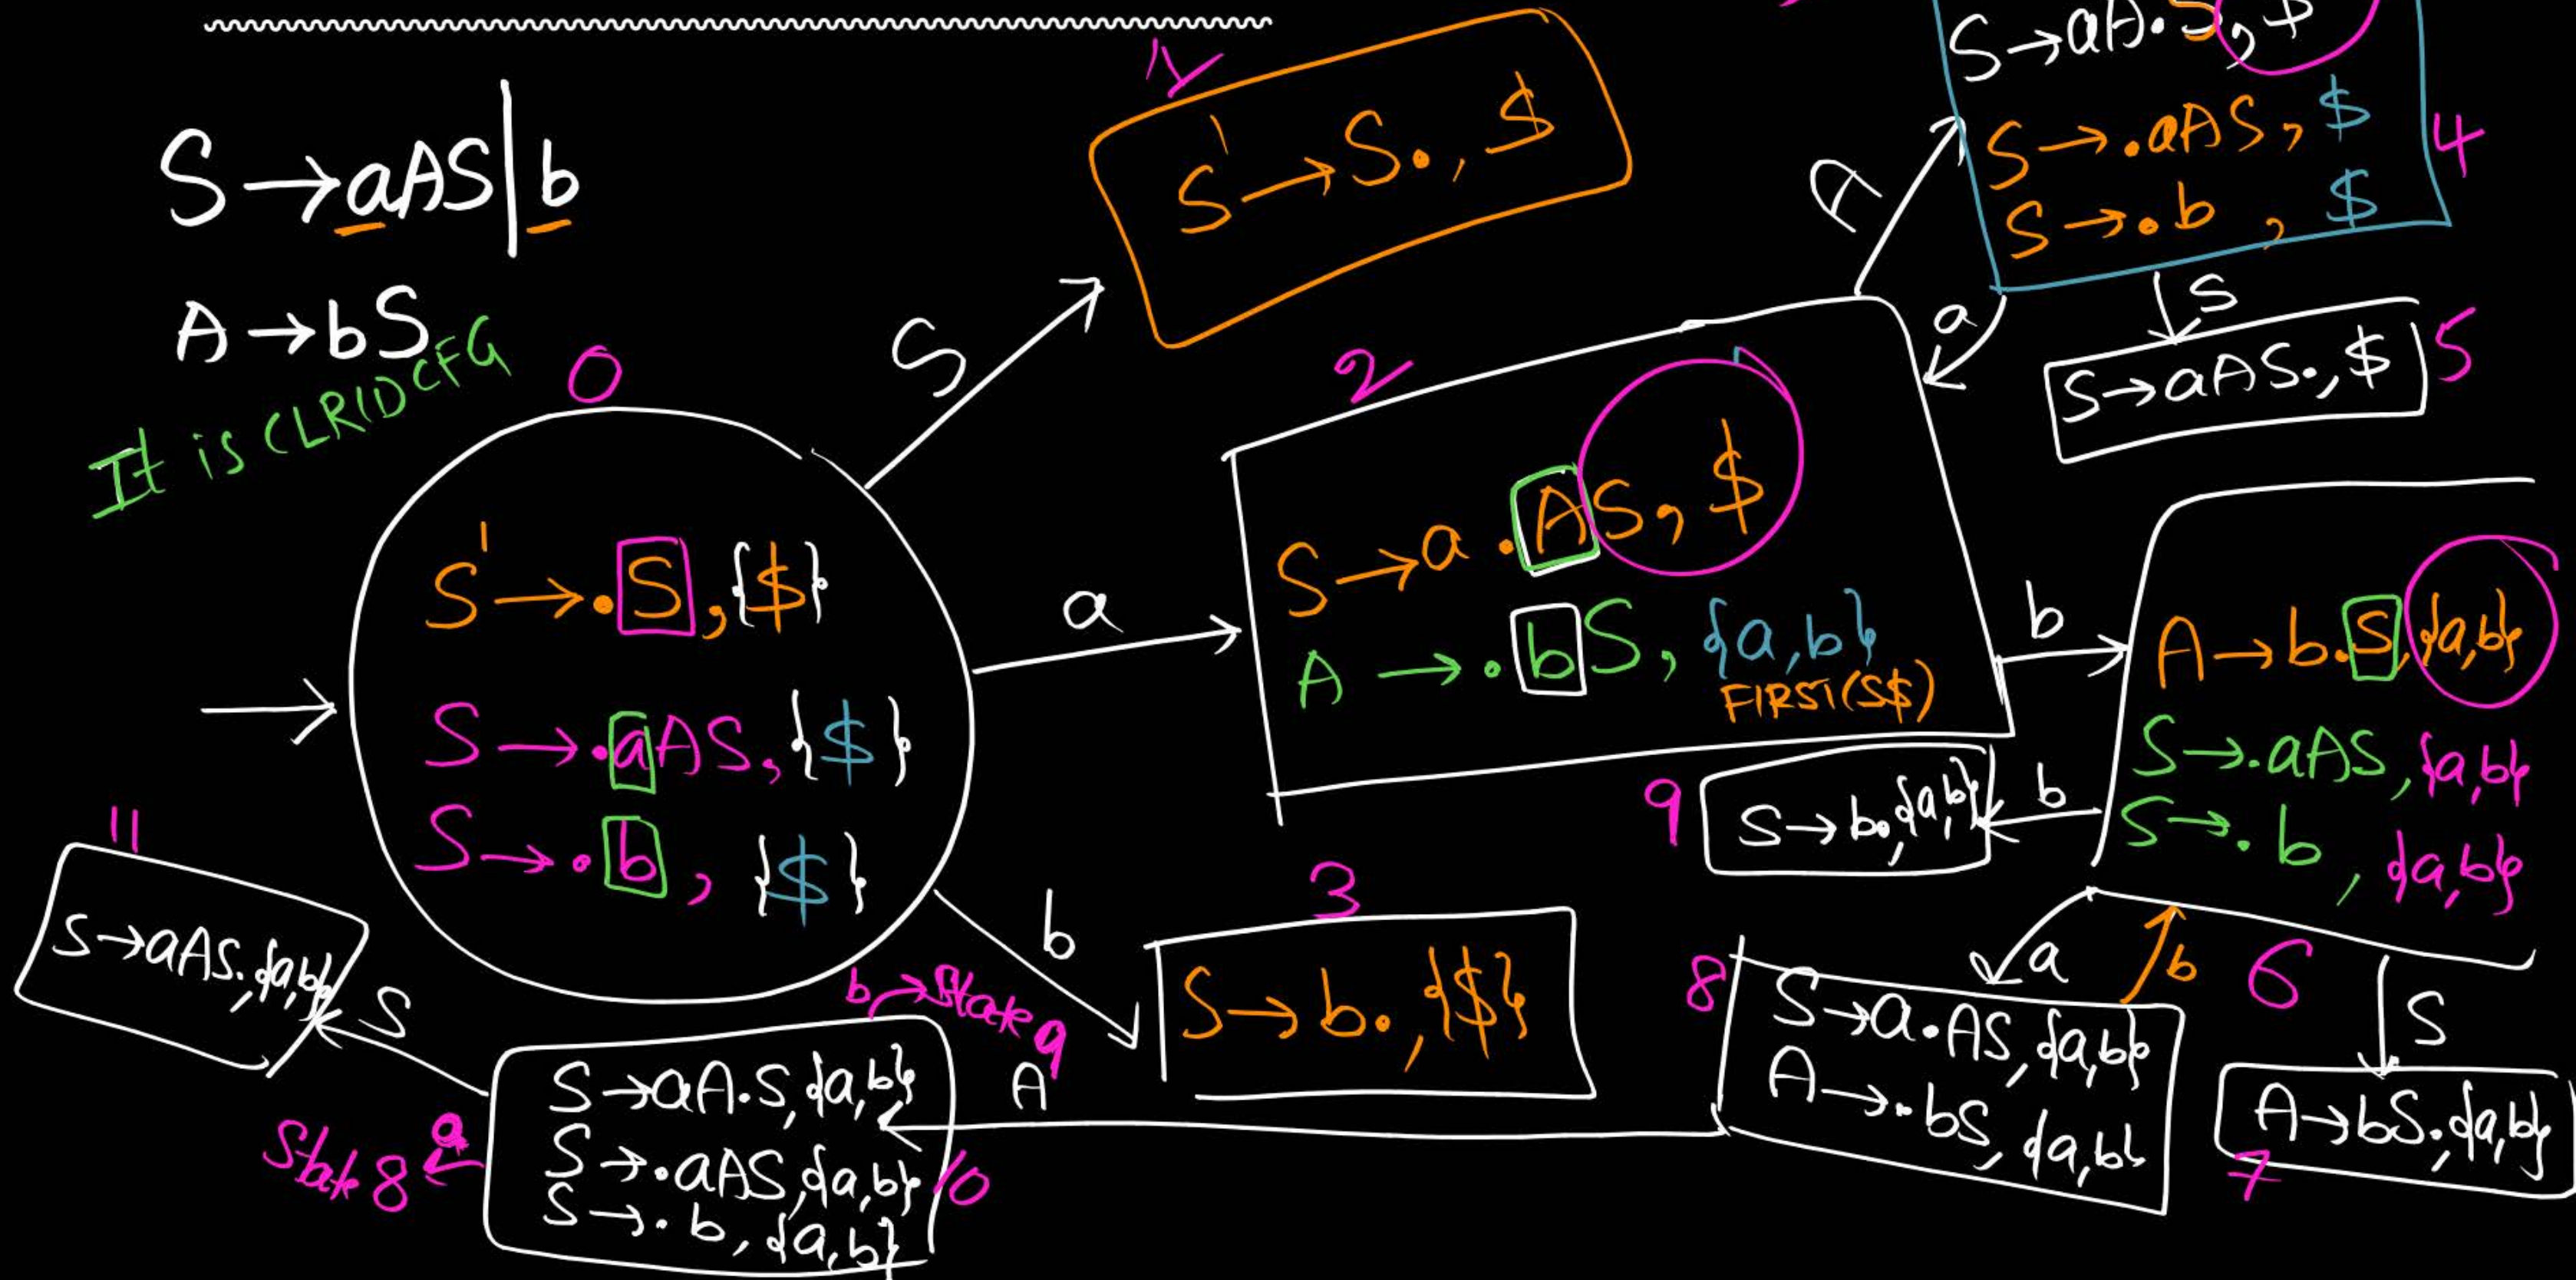 S→aAS|b
A→bS
It is CLR(1) CFG
0
S'→.S,{$}
S→.aAS,{$}
S→.b,{$}
S
1
S'→S.,$
a
2
S→a.AS,$
A→.bS,{a,b}
FIRST(S$)
b
3
S→b.,{$}
A
S→aA.S,$
S→.aAS,$
S→.b,$
4
a
S
S→aAS.,$
5
b
A→b.S,{a,b}
S→.aAS,{a,b}
S→.b,{a,b}
6
b
9
S→b.,{a,b}
a
b
8
S→a.AS,{a,b}
A→.bS,{a,b}
S
A→bS.,{a,b}
7
A
b→State 9
S→aA.S,{a,b}
S→.aAS,{a,b}
S→.b,{a,b}
10
a
State 8
S
11
S→aAS.,{a,b}